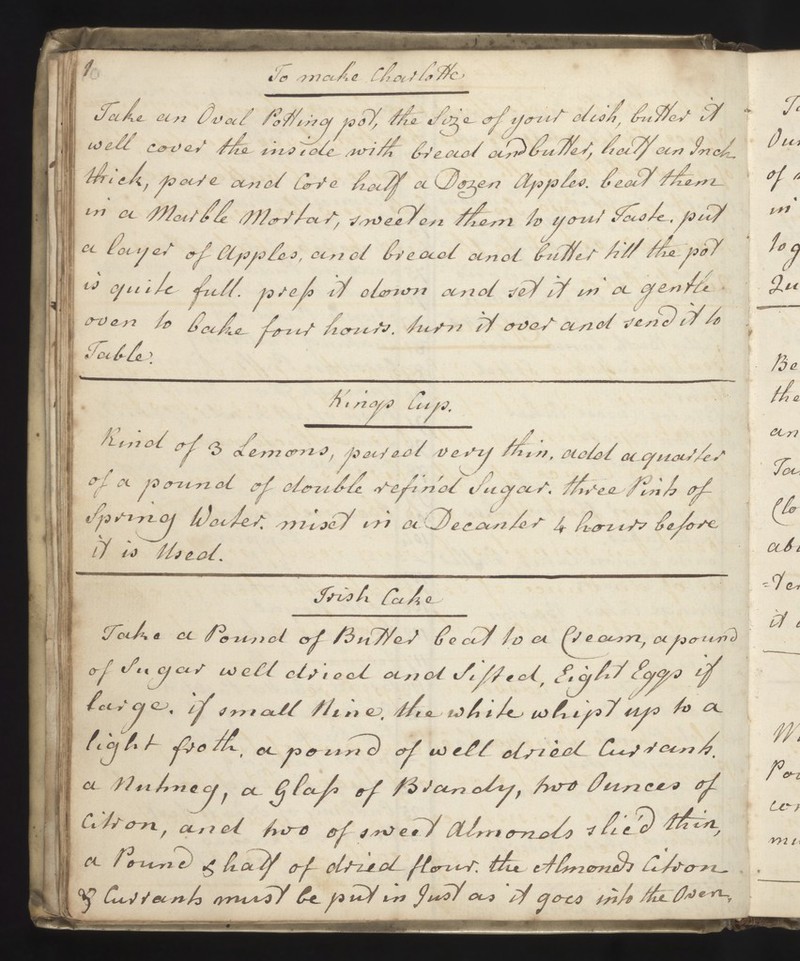 10
To make Charlotte
Take an Oval Potting pot, the Size of your dish, butter it
well cover the inside with bread and butter, half an Inch
thick, pare and Core half a Dozen Apples. beat them
in a Marble Mortar, sweeten them to your Taste. put
a layer of Apples, and bread and butter till the pot
is quite full. press it down and set it in a gentle
oven to bake four hours. turn it over and send it to
Table.
Kings Cup.
Rind of 3 Lemons, pared very thin. add a quarter
of a pound of double refin'd Sugar. three Pints of
Spring Water. mixet in a Decanter 4 hours before
it is Used.
Irish Cake
Take a Pound of Butter beat to a Cream, a pound
of Sugar well dried and Sifted, Eight Eggs if
large. if small Nine. the white whipt up to a
light froth. a pound of well dried Currants.
a Nutmeg, a Glass of Brandy, two Ounces of
Citron, and two of sweet Almonds slic'd thin,
a Pound & half of dried flour. the Almonds Citron
& Currants must be put in Just as it goes into the Oven.
of
in
Be
the
an
it